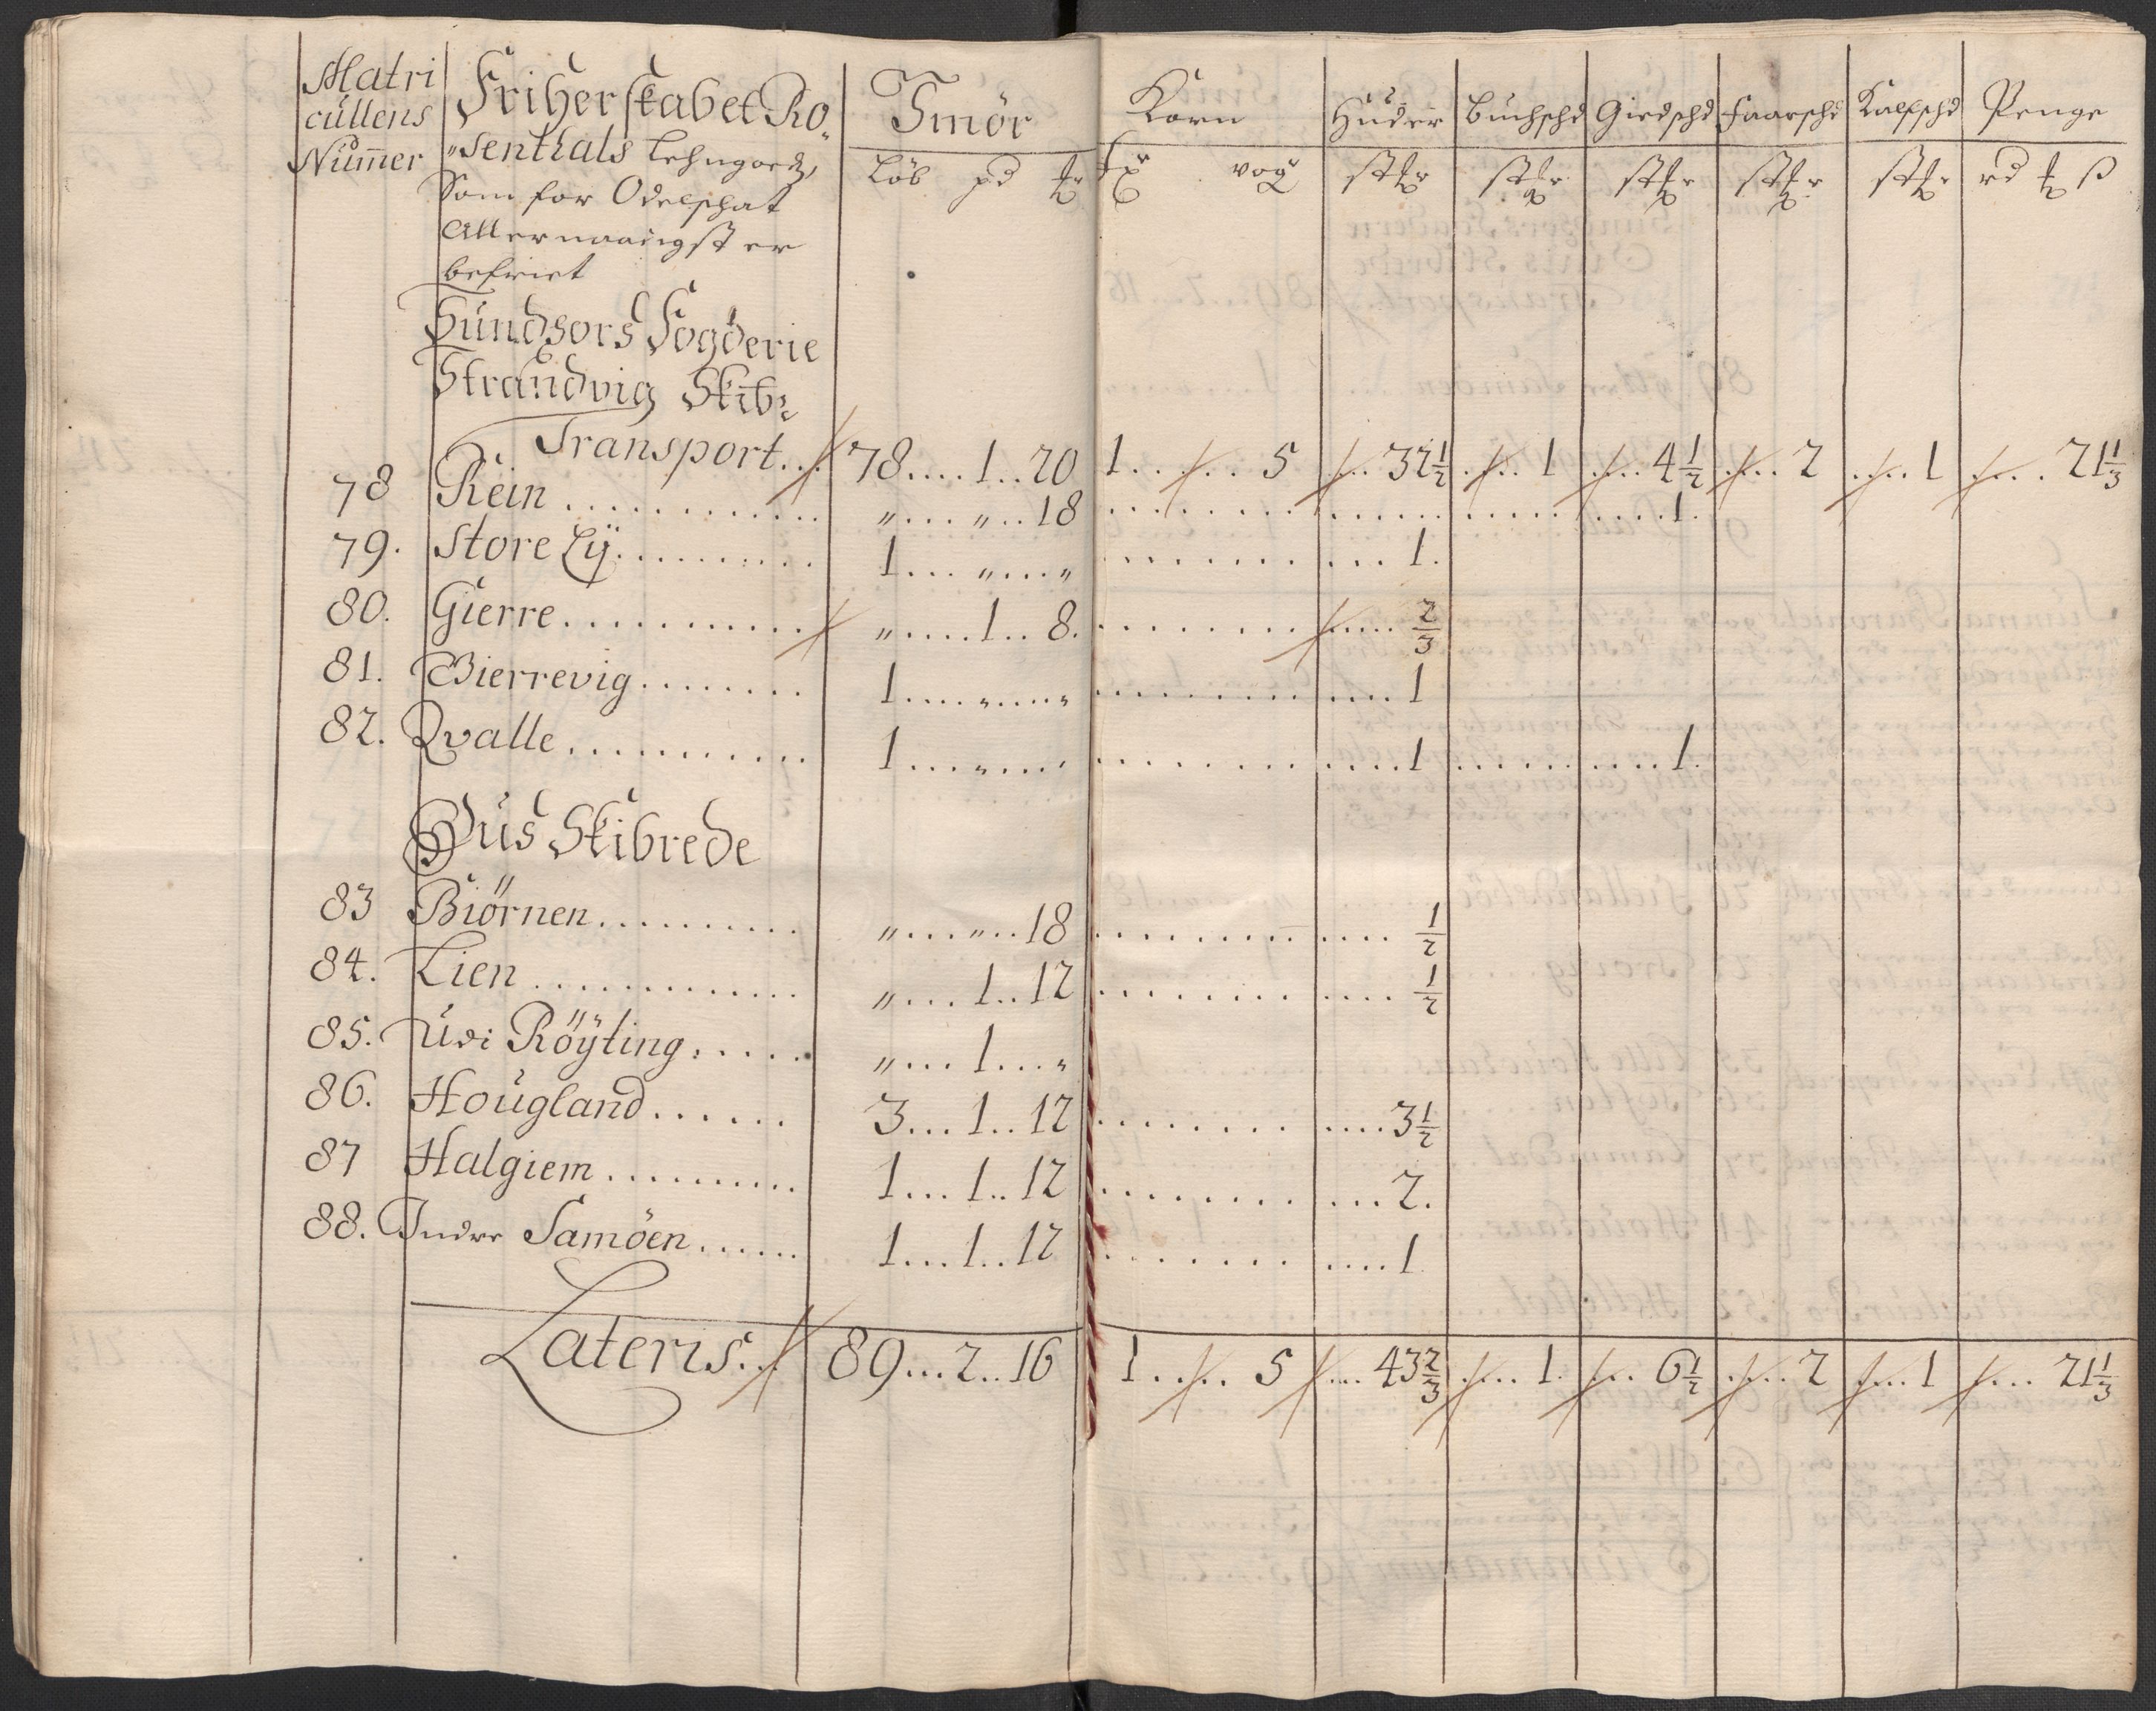 Matri
cüllens
Num̄er
Friherskabet Ro
"senthals Lehngods,
Som for Odelschat
Allernaadigst er
befriet
Smör
Löb pd
Korn
vog
Huder
Buchschd
Giedschd
Faarschd
Kalfschd
Penge
rd ß
Sündhors Fogderie
Strandvig Skib:
Transport... 78....1..20 1..... 5 ... 32½ ... 1 ... 4½ ... 2 ... 1 ... 21⅓
78 Rein ............ "...."..18 ............ 1.
79. Store Ly......... 1..."...." ............ 1.
80. Gierre........... ".....1..8. ............ ⅔
81. Bierrevig........ 1....".....". ............ 1
82. Qvalle........... 1....".....". ............ 1 ......... 1.
Qüs Skibrede
83 Biörnen.......... "...."..18 ............ ½
84. Lien ............. "....1..12 ............ ½
85. Üdi Röyting...... "....1...."
86. Hoügland...... 3...1..12 ............ 3½
87 Halgiem.......... 1...1..12 ............ 2.
88. Indre Samöen...... 1...1..12 ............ 1
Lateris... 89...2..16 1..... 5 ... 43⅔ ... 1. ... 6½ ... 2 ... 1 ... 21⅓